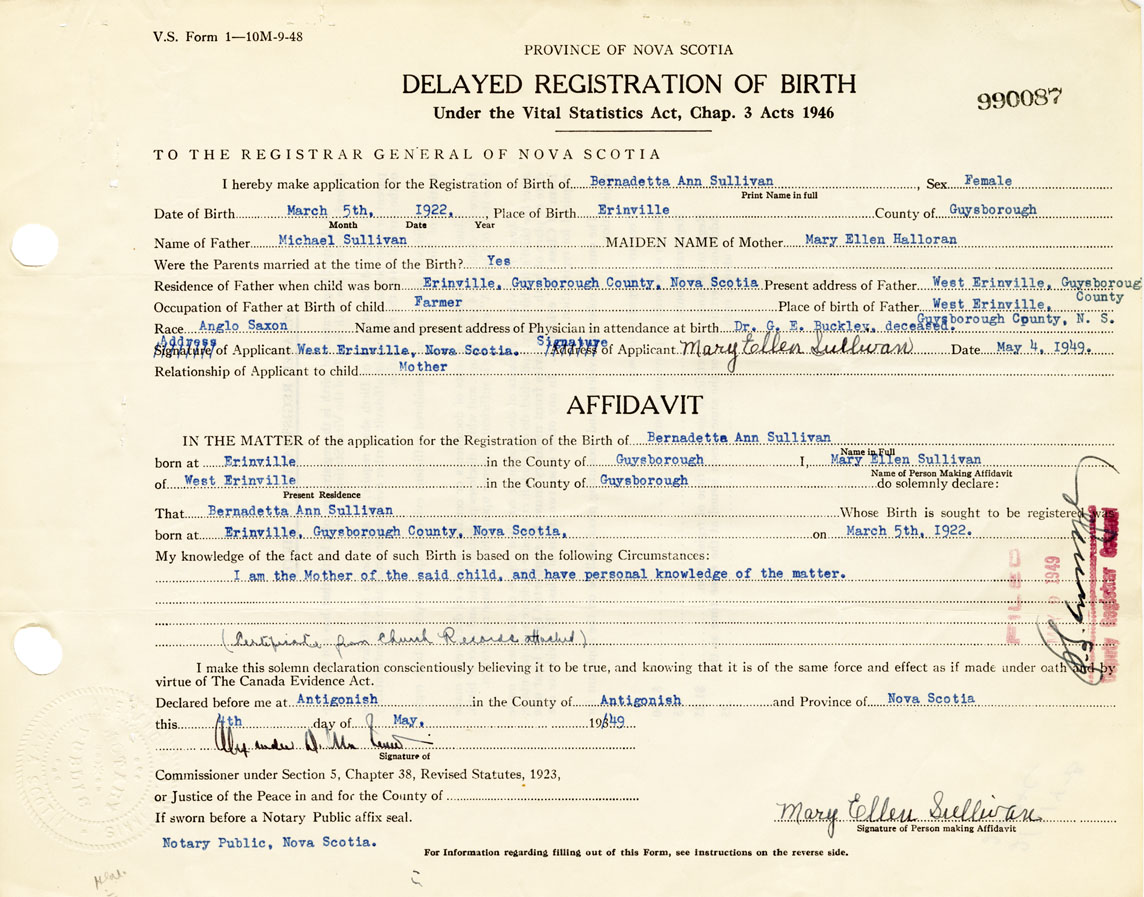 V.S. Form 1—10M-9-48
PROVINCE OF NOVA SCOTIA
DELAYED REGISTRATION OF BIRTH
990087
Under the Vital Statistics Act, Chap. 3 Acts 1946
TO THE REGISTRAR GENERAL OF NOVA SCOTIA
I hereby make application for the Registration of Birth of Bernadetta Ann Sullivan, Sex Female
Print Name in full
Date of Birth March 5th, 1922, Place of Birth Erinville County of Guysborough
Month Date Year
Name of Father Michael Sullivan MAIDEN NAME of Mother Mary Ellen Halloran
Were the Parents married at the time of the Birth? Yes
Residence of Father when child was born Erinville, Guysborough County, Nova Scotia Present address of Father West Erinville, Guysboroug
County
Occupation of Father at Birth of child Farmer Place of birth of Father West Erinville,
Guysborough County, N. S.
Race Anglo Saxon Name and present address of Physician in attendance at birth Dr. G. E. Buckley, deceased.
Address Signature
Signature/of Applicant West Erinville, Nova Scotia. Address of Applicant Mary Ellen Sullivan Date May 4, 1949.
Relationship of Applicant to child Mother
AFFIDAVIT
IN THE MATTER of the application for the Registration of the Birth of Bernadetta Ann Sullivan
Name in Full
born at Erinville in the County of Guysborough I, Mary Ellen Sullivan
Name of Person Making Affidavit
of West Erinville in the County of Guysborough do solemnly declare:
Present Residence
That Bernadetta Ann Sullivan Whose Birth is sought to be registered was
born at Erinville, Guysborough County, Nova Scotia, on March 5th, 1922.
My knowledge of the fact and date of such Birth is based on the following Circumstances:
I am the Mother of the said child, and have personal knowledge of the matter.
FILED
1949
Deputy Registrar General
(Certificate from Church Records attached)
I make this solemn declaration conscientiously believing it to be true, and knowing that it is of the same force and effect as if made under oath and by
virtue of The Canada Evidence Act.
Declared before me at Antigonish in the County of Antigonish and Province of Nova Scotia
this 4th day of May, 1949
Alexander D.
Signature of
Commissioner under Section 5, Chapter 38, Revised Statutes, 1923,
or Justice of the Peace in and for the County of
If sworn before a Notary Public affix seal.
Mary Ellen Sullivan
Signature of Person making Affidavit
Notary Public, Nova Scotia.
For Information regarding filling out of this Form, see instructions on the reverse side.